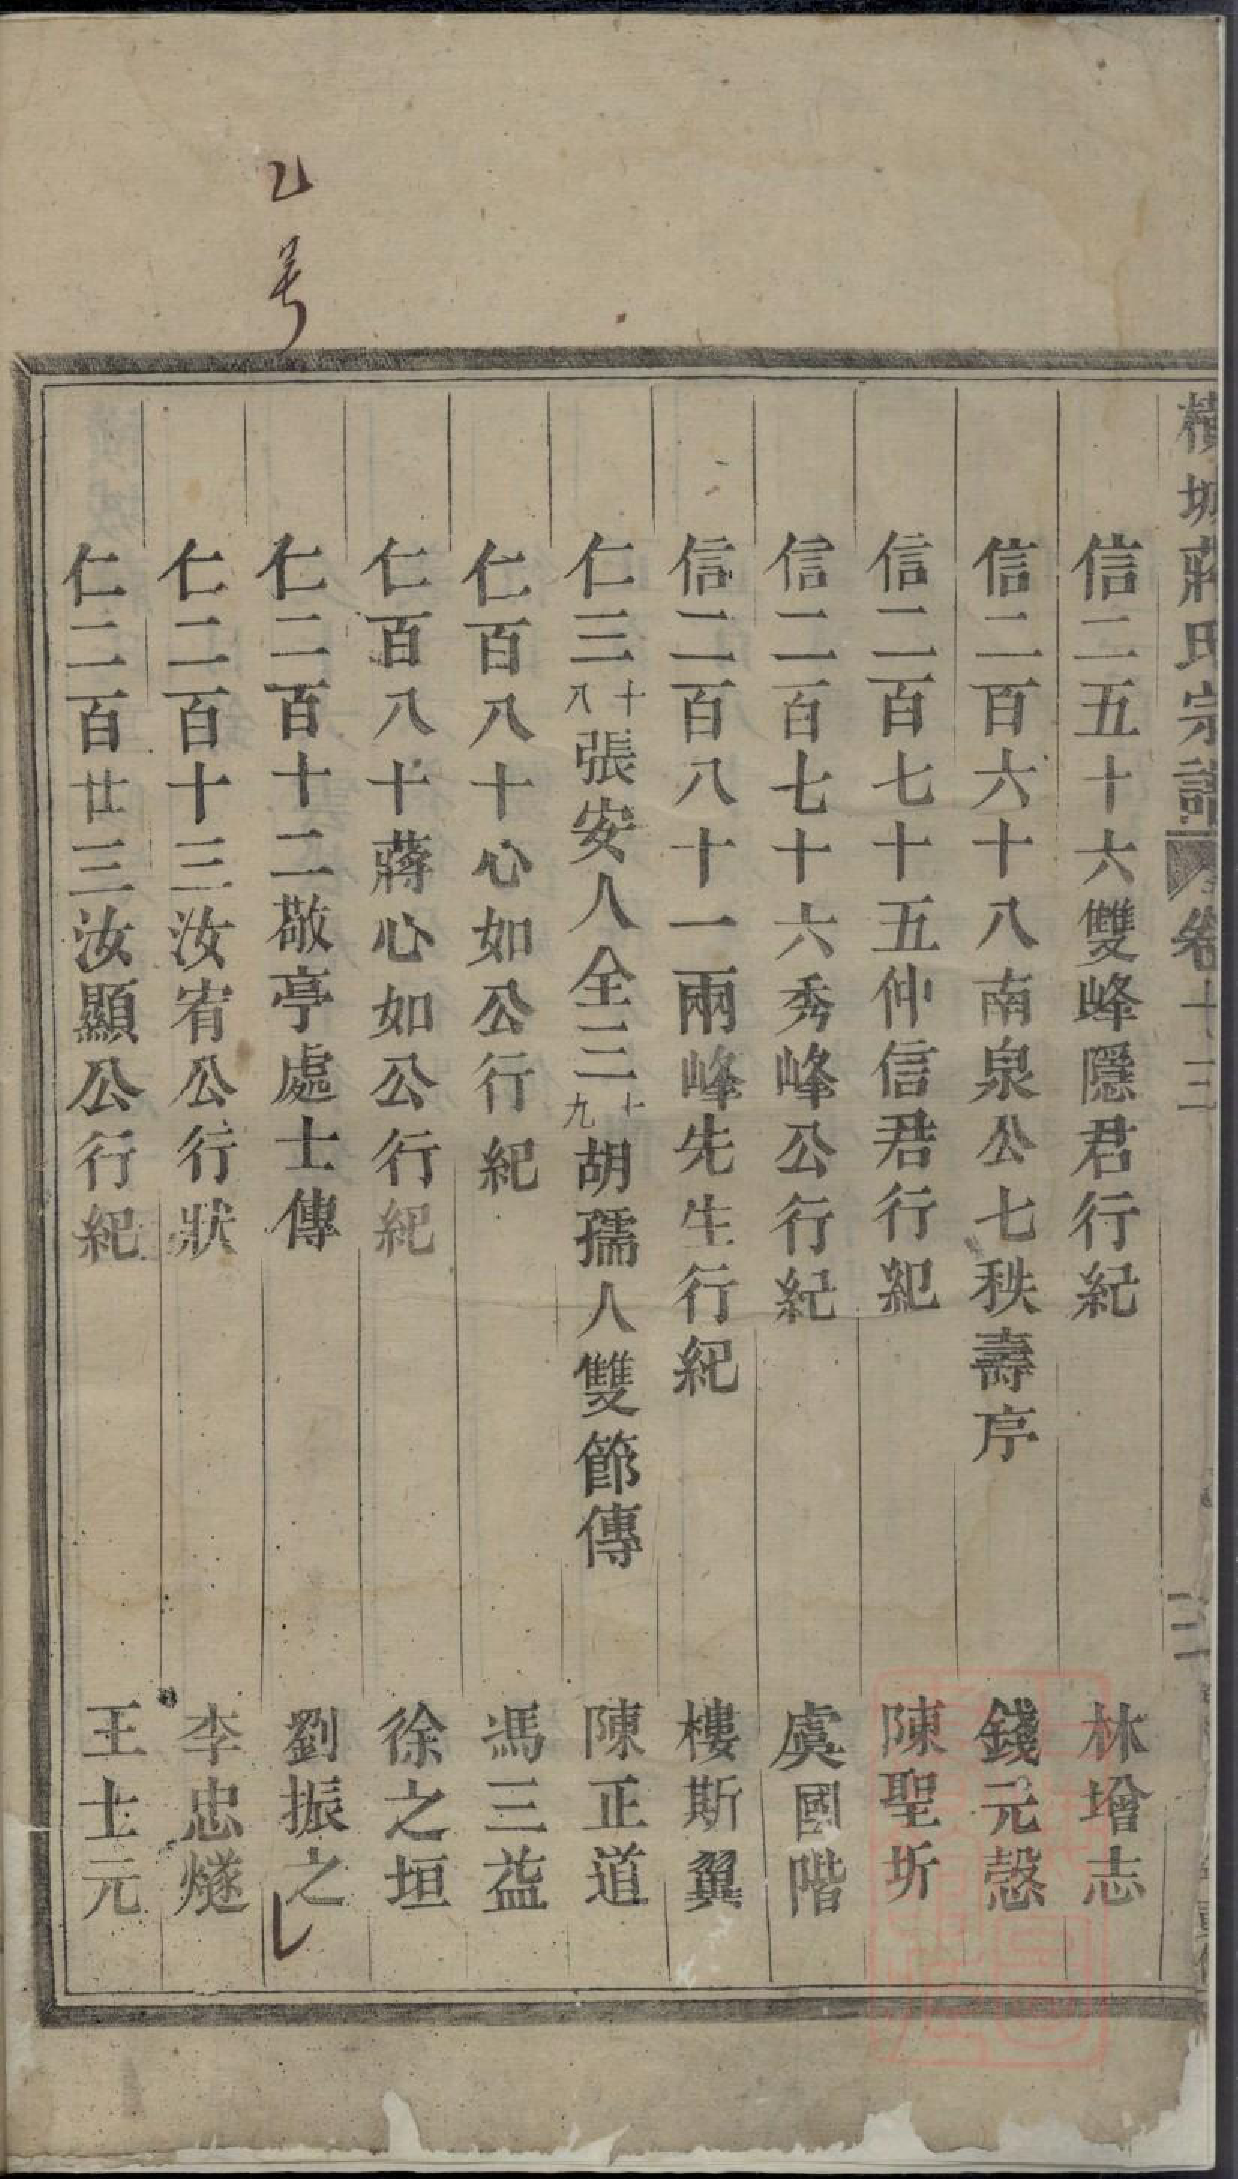 橫城蔣氏宗譜 卷十三 二
信二五十六雙峰隱君行紀 林增志
信二百六十八南泉公七秩壽序 錢元慤
信二百七十五仲信君行紀 陳聖圻
信二百七十六秀峰公行紀 虞國階
信二百八十一兩峰先生行紀 樓斯翼
仁三十八張安人全三十九胡孺人雙節傳 陳正道
仁百八十心如公行紀 馮三益
仁百八十蔣心如公行紀 徐之垣
仁二百十二敬亭處士傳 劉振之
仁二百十三汝宥公行狀 李忠燧
仁二百廿三汝顯公行紀 王士元
乙号